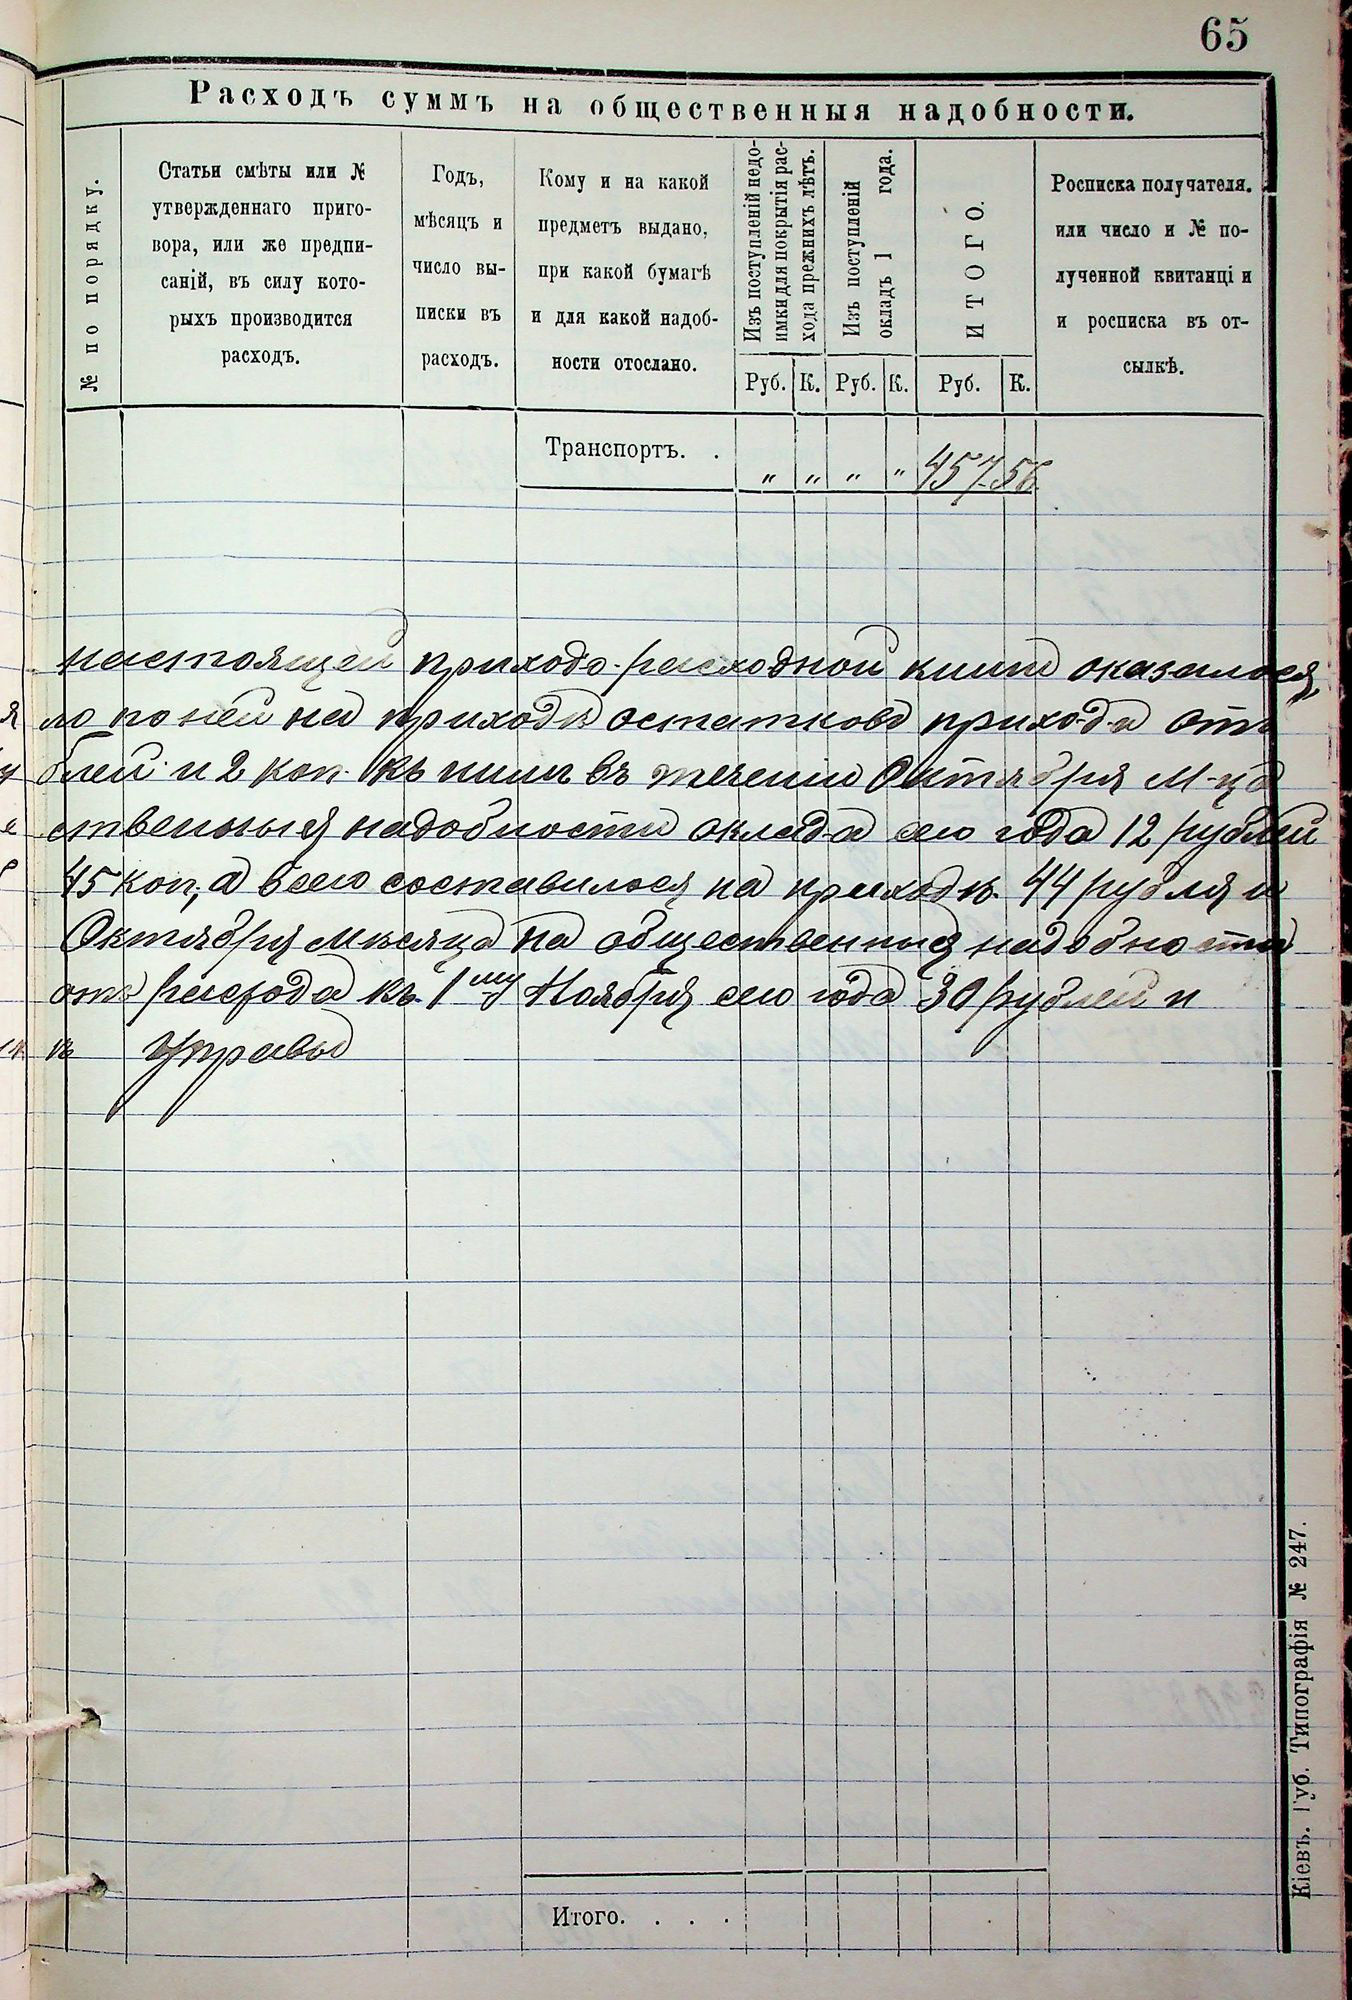 65
Расходъ суммъ на общественныя надобности.
№ по порядку.
Статьи смѣты или №
утвержденнаго приго-
вора, или же предпи-
саній, въ силу кото-
рыхъ производится
расходъ.
Годъ,
мѣсяцъ и
число вы-
писки въ
расходъ.
Кому и на какой
предметъ выдано,
при какой бумагѣ
и для какой надоб-
ности отослано.
Изъ поступленій недо-
имки для покрытія рас-
хода прежнихъ лѣтъ.
Изъ поступленій
окладъ 1 года.
ИТОГО.
Росписка получателя.
или число и № по-
лученной квитанці и
и росписка въ от-
сылкѣ.
Руб. К. Руб. К. Руб. К.
Транспортъ. . „ „ „ „ 457 56
настоящей приходо-расходной книги оказалося,
ло по ней на приходѣ остатковъ прихода отъ
блей и 2 коп. къ ним въ теченіи Октября М-ца
ственныя надобности оклада сего года 12 рублей
45 коп, а всего составилося на приходѣ 44 рубля и
Октября Мѣсяца на общественныя надобности
отъ расхода къ 1му Ноября сего года 30 рублей и
Управы
Итого. . . .
Кіевъ. Губ. Типографія № 247.